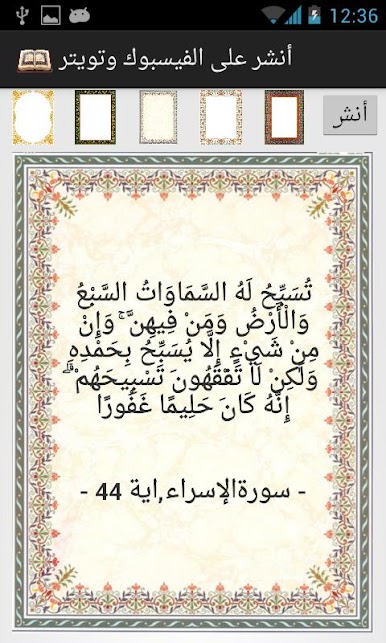 12:36
أنشر على الفيسبوك وتويتر
أنش
تُسَبِّحُ لَهُ السَّمَاوَاتُ السَّبْعُ
وَالْأَرْضُ وَمَنْ فِيهِنَّ ۚ وَإِنْ
مِنْ شَيْءٍ إِلَّا يُسَبِّحُ بِحَمْدِهِ
وَلَٰكِنْ لَا تَفْقَهُونَ تَسْبِيحَهُمْ ۗ
إِنَّهُ كَانَ حَلِيمًا غَفُورًا
- سورةالإسراء,اية 44 -